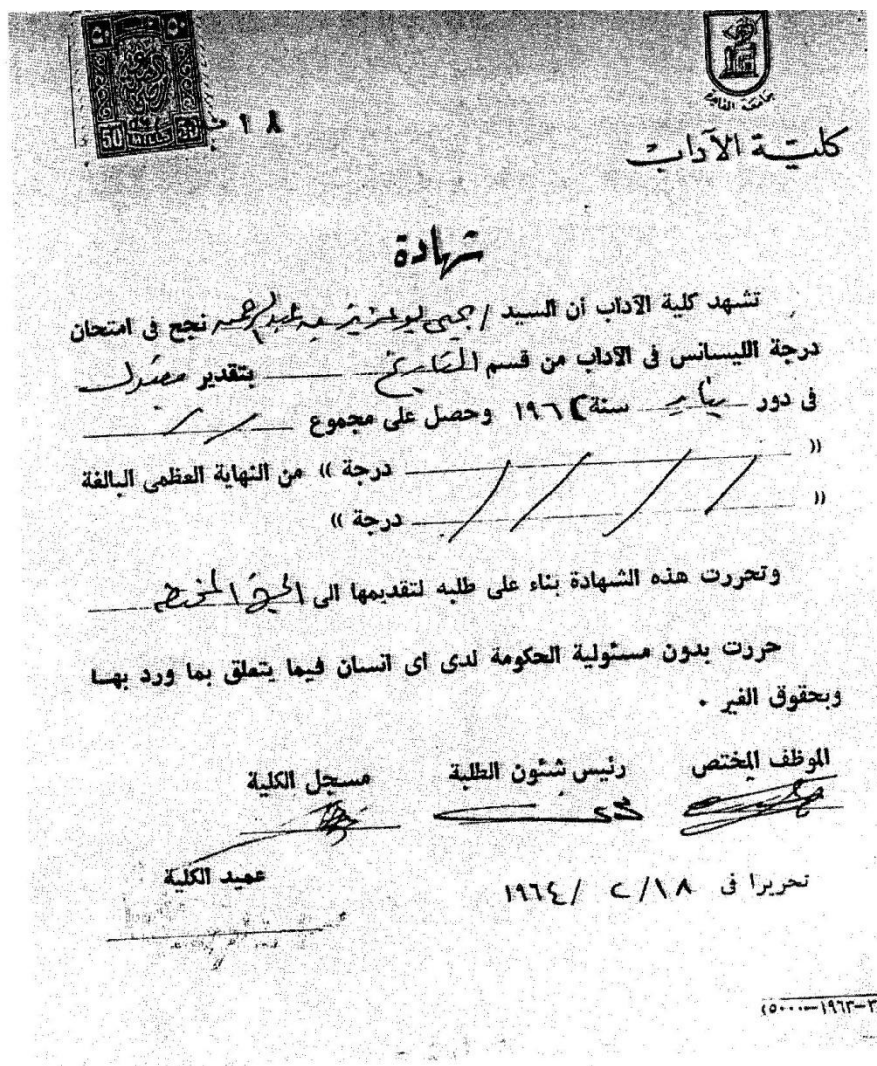 ٥٠ ٥٠
دمغة
50 MILLS
١٨
جامعة القاهرة
كلية الآداب
شهادة
تشهد كلية الآداب أن السيد / يحيى بوعزيز بن عبد الرحمن نجح فى امتحان
درجة الليسانس فى الآداب من قسم التاريخ بتقدير مقبول
فى دور يناير سنة ١٩٦٢ وحصل على مجموع
« درجة » من النهاية العظمى البالغة
« درجة »
وتحررت هذه الشهادة بناء على طلبه لتقديمها الى الجهة المختصة
حررت بدون مسئولية الحكومة لدى اى انسان فيما يتعلق بما ورد بها
وبحقوق الغير .
الموظف المختص رئيس شئون الطلبة مسجل الكلية
عميد الكلية
تحريرا فى ١٨/ ٢ /١٩٦٤
٣-١٩٦٣-٥٠٠٠)